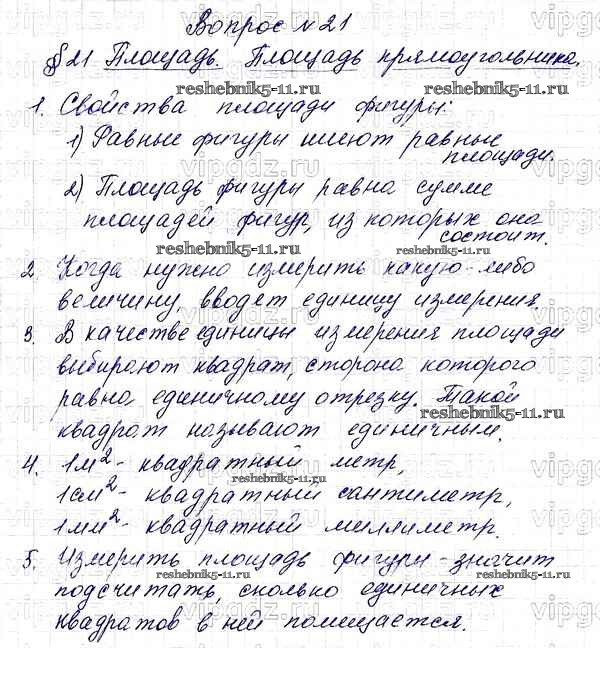 Вопрос №21
§21 Площадь. Площадь прямоугольника.
reshebnik5-11.ru
1. Свойства площади фигуры:
1) Равные фигуры имеют равные
площади.
2) Площадь фигуры равна сумме
площадей фигур, из которых она
состоит.
reshebnik5-11.ru reshebnik5-11.ru
2. Когда нужно измерить какую-либо
величину, вводят единицу измерения.
3. В качестве единицы измерения площади
выбирают квадрат, сторона которого
равна единичному отрезку. Такой
reshebnik5-11.ru
квадрат называют единичным.
4. 1м² - квадратный метр,
reshebnik5-11.ru
1см² - квадратный сантиметр,
1мм² - квадратный миллиметр.
5. Измерить площадь фигуры - значит
reshebnik5-11.ru reshebnik5-11.ru
подсчитать, сколько единичных
квадратов в ней помещается.